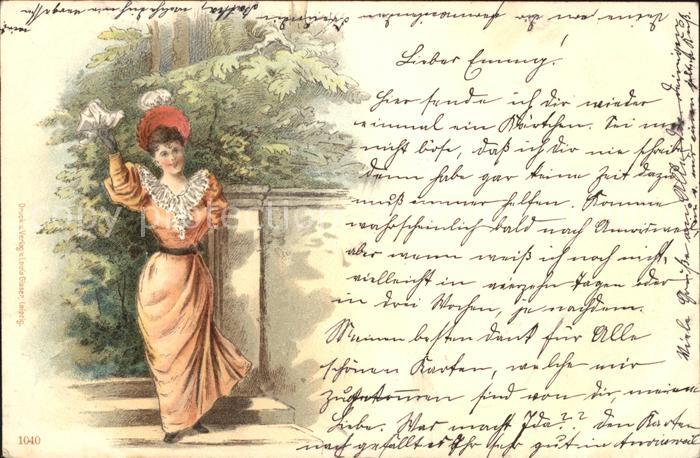 Lieber Emmy!
Hier sende ich dir wieder
einmal ein Kärtchen. Sei mir
nicht böse, daß ich dir nie schreib
denn habe gar keine Zeit dazu
muß immer helfen. Komme
wahrscheinlich bald nach
aber wann weiß ich noch nicht,
vielleicht in vierzehn Tagen oder
in drei Wochen, je nachdem.
Meinen besten Dank für Alle
schönen Karten, welche mir
zugekommen sind von dir, meine
Liebe. Was macht Ida?? den Karten
nach gefällt es Ihr sehr gut in
Viele Grüße an
Druck u. Verlag v. Louis Glaser, Leipzig.
1040
copyright protection